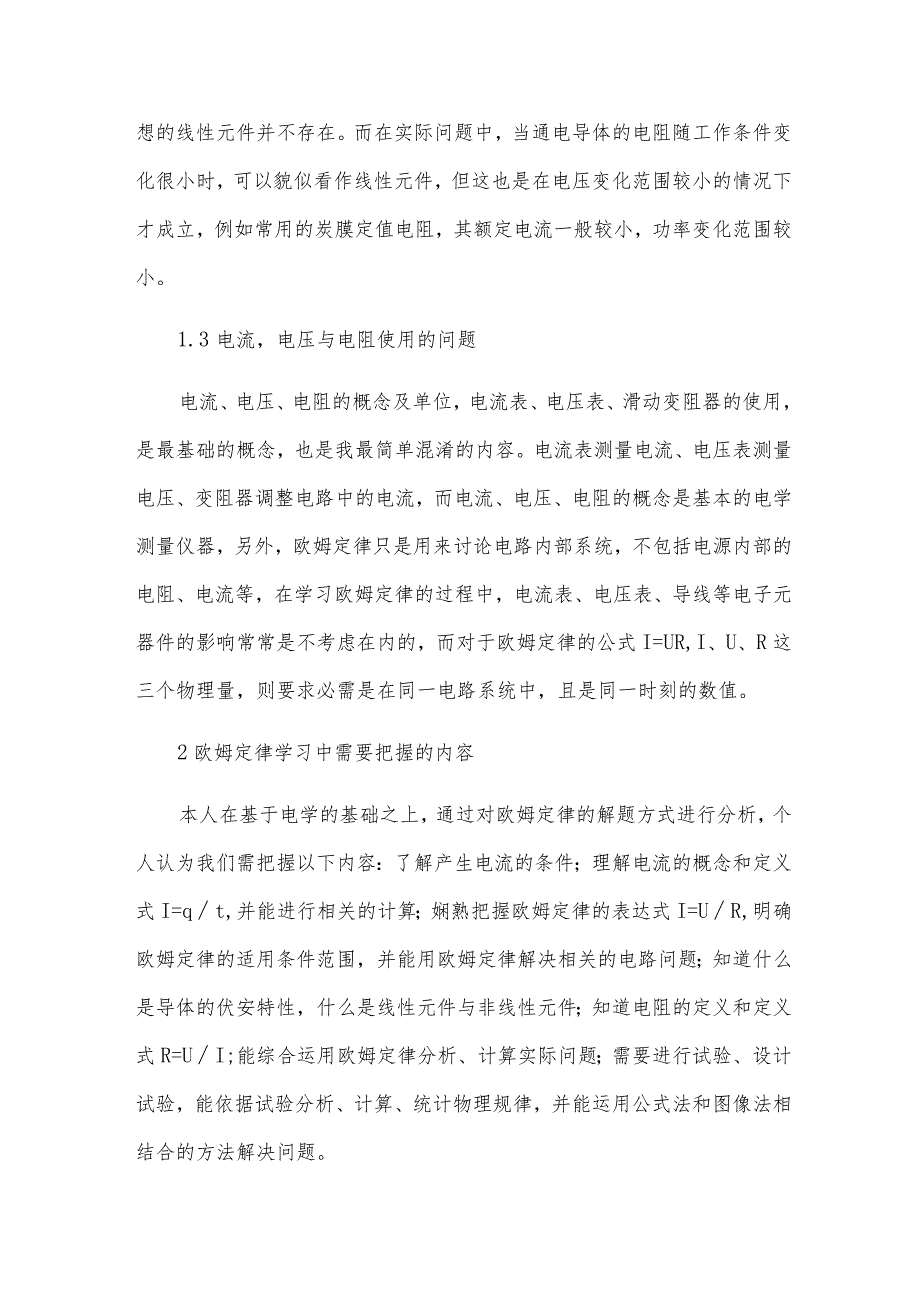 想的线性元件并不存在。而在实际问题中，当通电导体的电阻随工作条件变
化很小时，可以貌似看作线性元件，但这也是在电压变化范围较小的情况下
才成立，例如常用的炭膜定值电阻，其额定电流一般较小，功率变化范围较
小。
1.3 电流，电压与电阻使用的问题
电流、电压、电阻的概念及单位，电流表、电压表、滑动变阻器的使用，
是最基础的概念，也是我最简单混淆的内容。电流表测量电流、电压表测量
电压、变阻器调整电路中的电流，而电流、电压、电阻的概念是基本的电学
测量仪器，另外，欧姆定律只是用来讨论电路内部系统，不包括电源内部的
电阻、电流等，在学习欧姆定律的过程中，电流表、电压表、导线等电子元
器件的影响常常是不考虑在内的，而对于欧姆定律的公式 I=UR,I、U、R 这
三个物理量，则要求必需是在同一电路系统中，且是同一时刻的数值。
2 欧姆定律学习中需要把握的内容
本人在基于电学的基础之上，通过对欧姆定律的解题方式进行分析，个
人认为我们需把握以下内容：了解产生电流的条件；理解电流的概念和定义
式 I=q／t,并能进行相关的计算；娴熟把握欧姆定律的表达式 I=U／R,明确
欧姆定律的适用条件范围，并能用欧姆定律解决相关的电路问题；知道什么
是导体的伏安特性，什么是线性元件与非线性元件；知道电阻的定义和定义
式 R=U／I;能综合运用欧姆定律分析、计算实际问题；需要进行试验、设计
试验，能依据试验分析、计算、统计物理规律，并能运用公式法和图像法相
结合的方法解决问题。